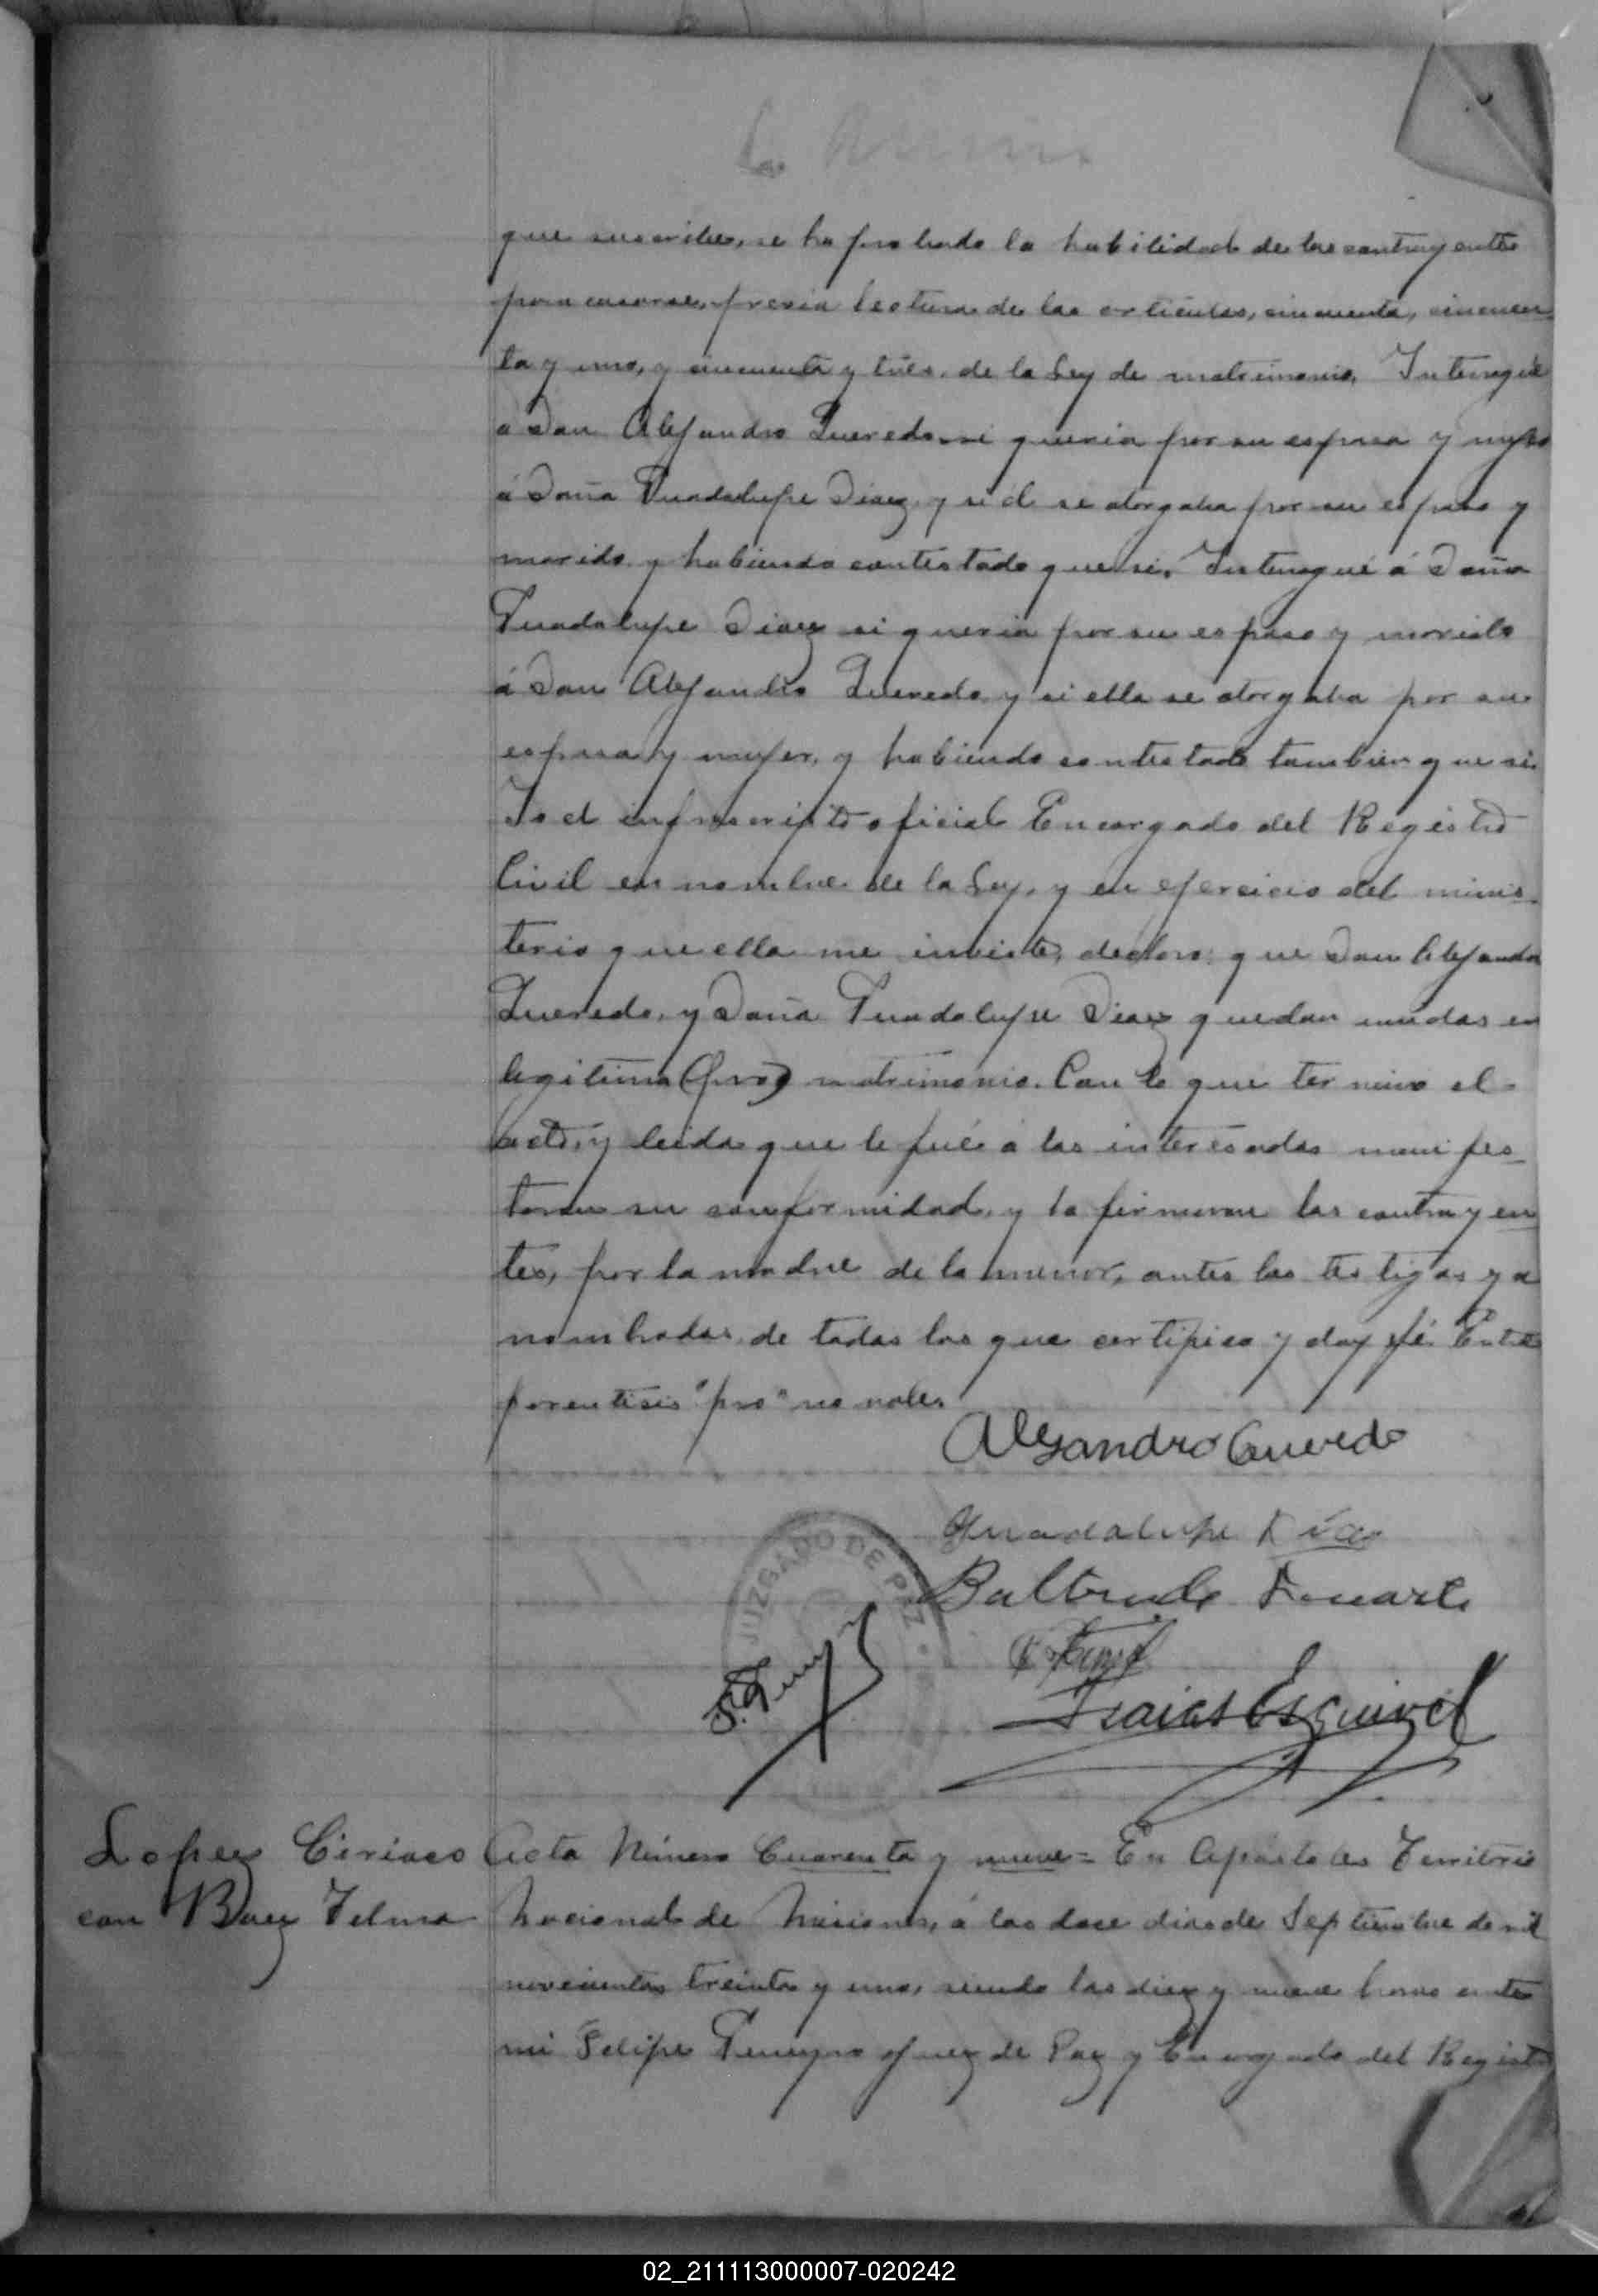 que suscribe, se ha probado la habilidad de los contrayentes
para casarse, previa lectura de los articulos, cincuenta, cincuen-
ta y uno, y cincuenta y tres, de la Ley de matrimonio, Interrogué
a Don Alejandro Quevedo si queria por su esposa y mujer
á Doña Guadalupe Diaz, y si él se otorgaba por su esposo y
marido y habiendo contestado que si, Interrogué á Doña
Guadalupe Diaz si queria por su esposo y marido
á Don Alejandro Quevedo, y si ella se otorgaba por su
esposa y mujer, y habiendo contestado tambien que si.
Yo el infrascripto oficial Encargado del Registro
Civil en nombre de la Ley, y en ejercicio del minis-
terio que ella me inviste, declaro: que Don Alejandro
Quevedo, y Doña Guadalupe Diaz quedan unidos en
legitimo (pro) matrimonio. Con lo que termino el
acto, y leida que le fué á los interesados manifes-
taron su conformidad, y la firmaron los contrayen
tes, por la madre de la menor, antes los testigos ya
nombrados, de todos los que certifico y doy fé. Entre
parentisis "pro" no vale.
Alejandro Quevedo
Guadalupe Diaz
Baltrude Douarte
Isaias Esquivel
JUZGADO DE PAZ
Lopez Ciriaco
con Baez Telma
Acta Número Cuarenta y nueve = En Apóstoles Territorio
Nacional de Misiones, á los doce dias de Septiembre de mil
novecientos treinta y uno, siendo las diez y nueve horas ante
mi Felipe Juez de Paz y Encargado del Registro
02_211113000007-020242